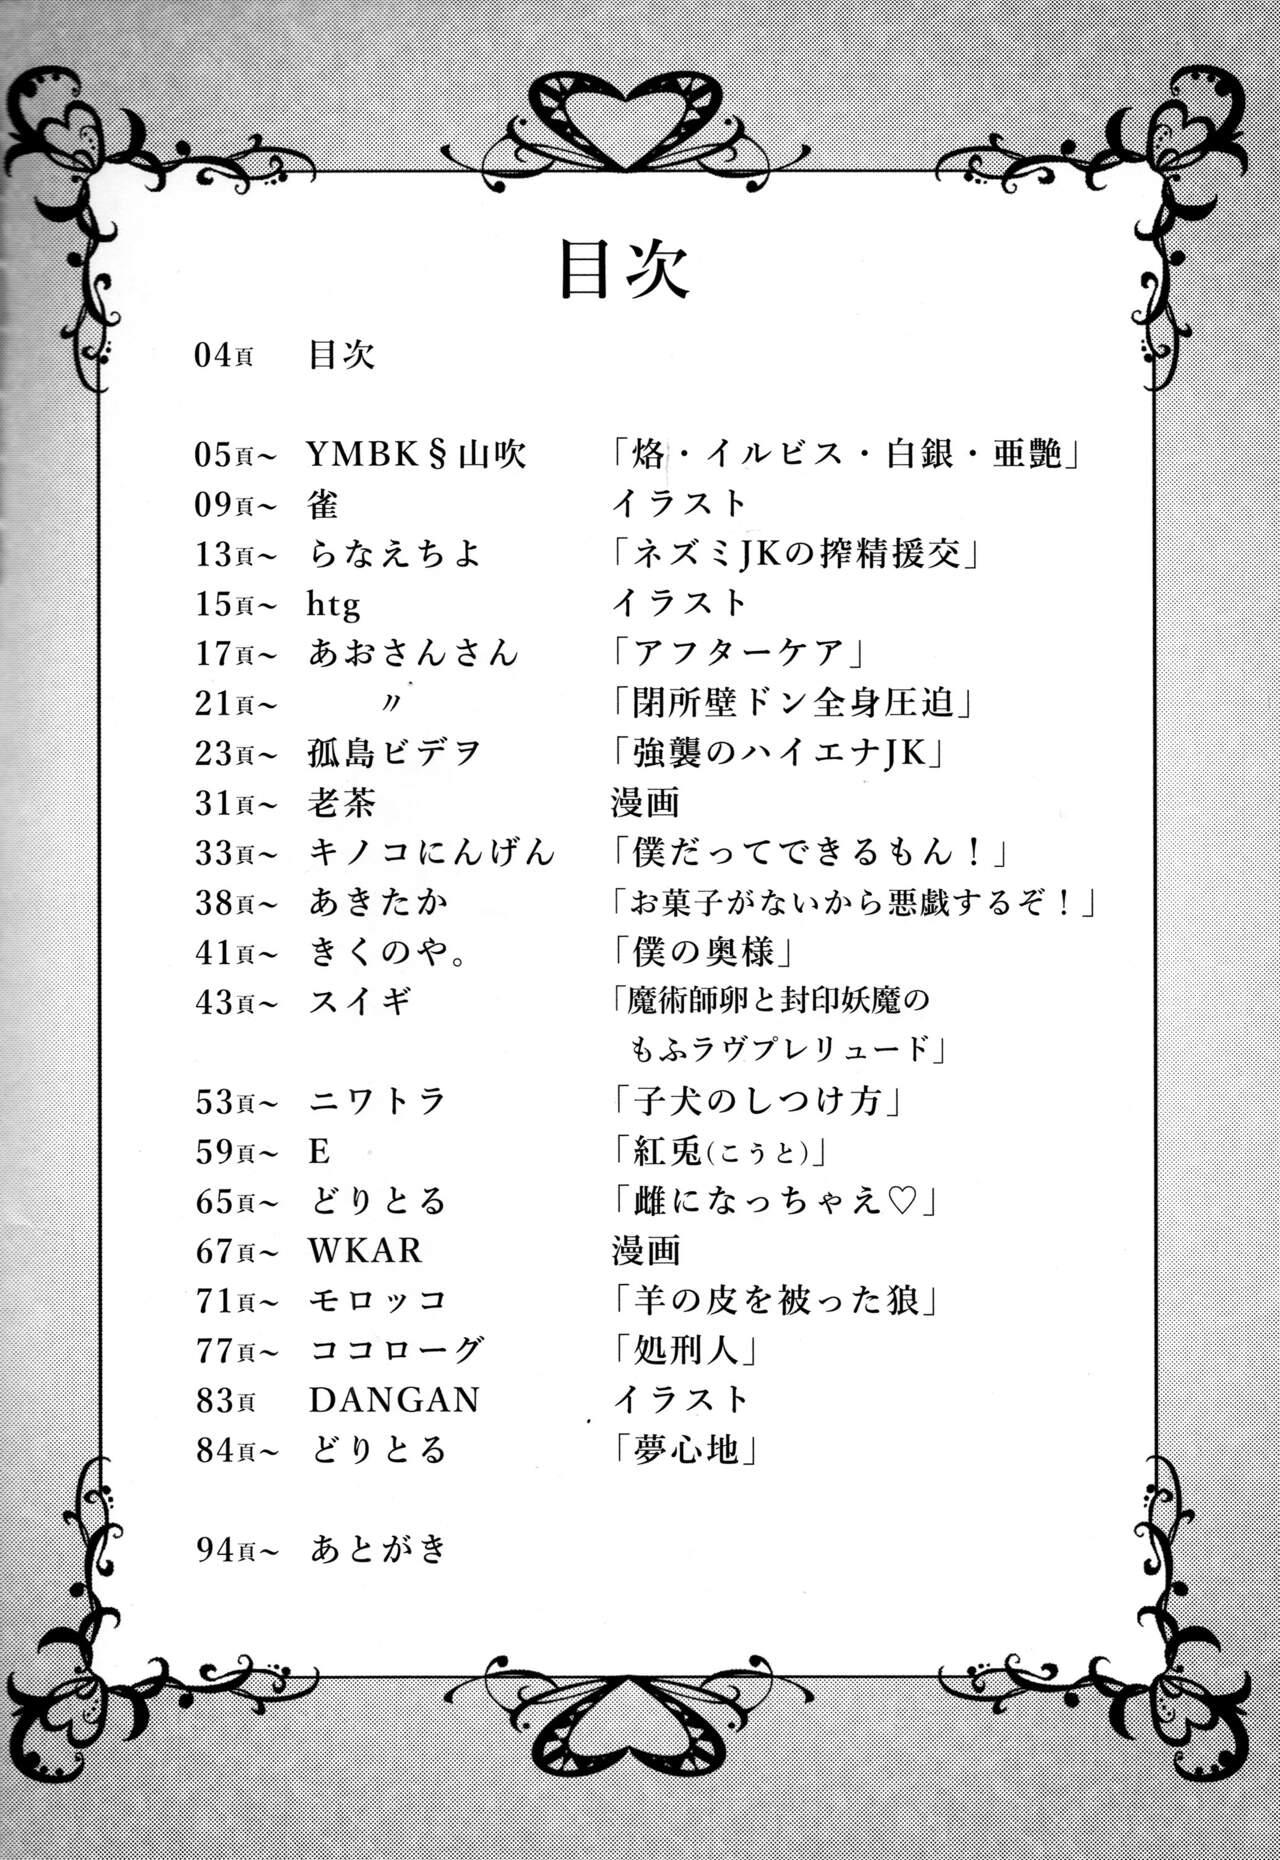 目次
04頁 目次
05頁～ YMBK§山吹 「烙・イルビス・白銀・亜艶」
09頁～ 雀 イラスト
13頁～ らなえちよ 「ネズミJKの搾精援交」
15頁～ htg イラスト
17頁～ あおさんさん 「アフターケア」
21頁～ 〃 「閉所壁ドン全身圧迫」
23頁～ 孤島ビデヲ 「強襲のハイエナJK」
31頁～ 老茶 漫画
33頁～ キノコにんげん 「僕だってできるもん！」
38頁～ あきたか 「お菓子がないから悪戯するぞ！」
41頁～ きくのや。 「僕の奥様」
43頁～ スイギ 「魔術師卵と封印妖魔の
もふラヴプレリュード」
53頁～ ニワトラ 「子犬のしつけ方」
59頁～ E 「紅兎(こうと)」
65頁～ どりとる 「雌になっちゃえ♡」
67頁～ WKAR 漫画
71頁～ モロッコ 「羊の皮を被った狼」
77頁～ ココローグ 「処刑人」
83頁 DANGAN イラスト
84頁～ どりとる 「夢心地」
94頁～ あとがき